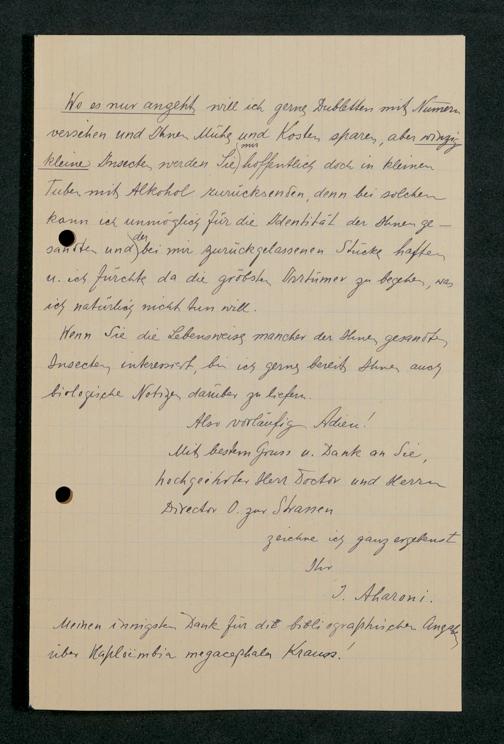 Wo es nur angeht will ich gerne Dubletten mit Numern
versehen und Ihnen Mühe und Kosten sparen, aber winzig
kleine Insecten werden Sie mir hoffentlich doch in kleinen
Tuben mit Alkohol zurücksenden, denn bei solchen
kann ich unmöglich für die Identität der Ihnen ge-
sandten und der bei mir zurückgelassenen Stücke haften
u. ich fürchte da die gröbsten Irrtümer zu begehen, was
ich natürlich nicht tun will.
Wenn Sie die Lebensweise mancher der Ihnen gesandten
Insecten interessiert, bin ich gerne bereit Ihnen auch
biologische Notizen darüber zu liefern.
Also vorläufig Adieu!
Mit bestem Gruss u. Dank an Sie,
hochgeehrter Herr Doctor und Herrn
Director O. zur Strassen
zeichne ich ganz ergebenst
Ihr
I. Aharoni.
Meinen innigsten Dank für die bibliographischen Angaben
über megacephala Krauss!